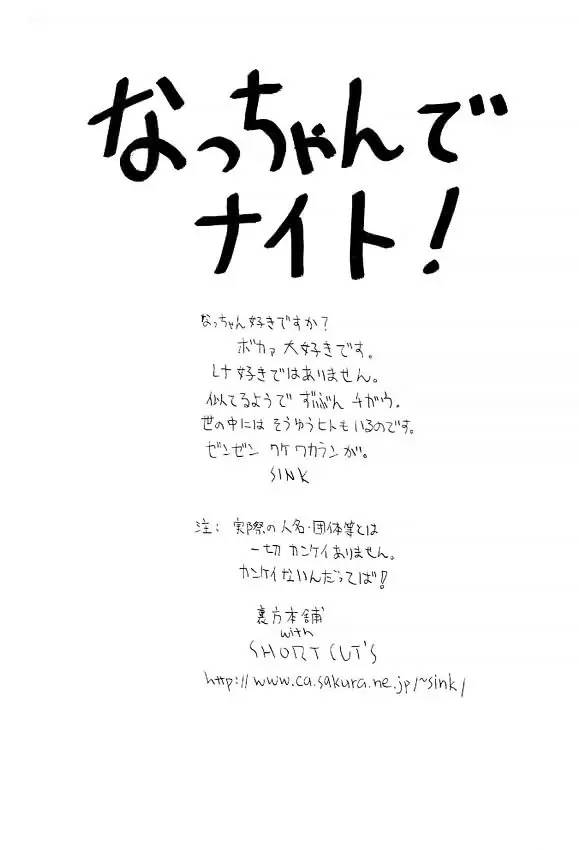 なっちゃんで
ナイト!
なっちゃん好きですか?
ボカァ 大好きです。
レナ好きではありません。
似てるようで ずいぶん チガウ.
世の中には そうゆうヒトも いるのです。
ゼンゼン ワケ ワカランが。
SINK
注: 実際の人名・団体等とは
一切 カンケイ ありません。
カンケイ ないんだってば!
裏方本舗
with
SHORT CUT'S
http://www.ca.sakura.ne.jp/~sink/